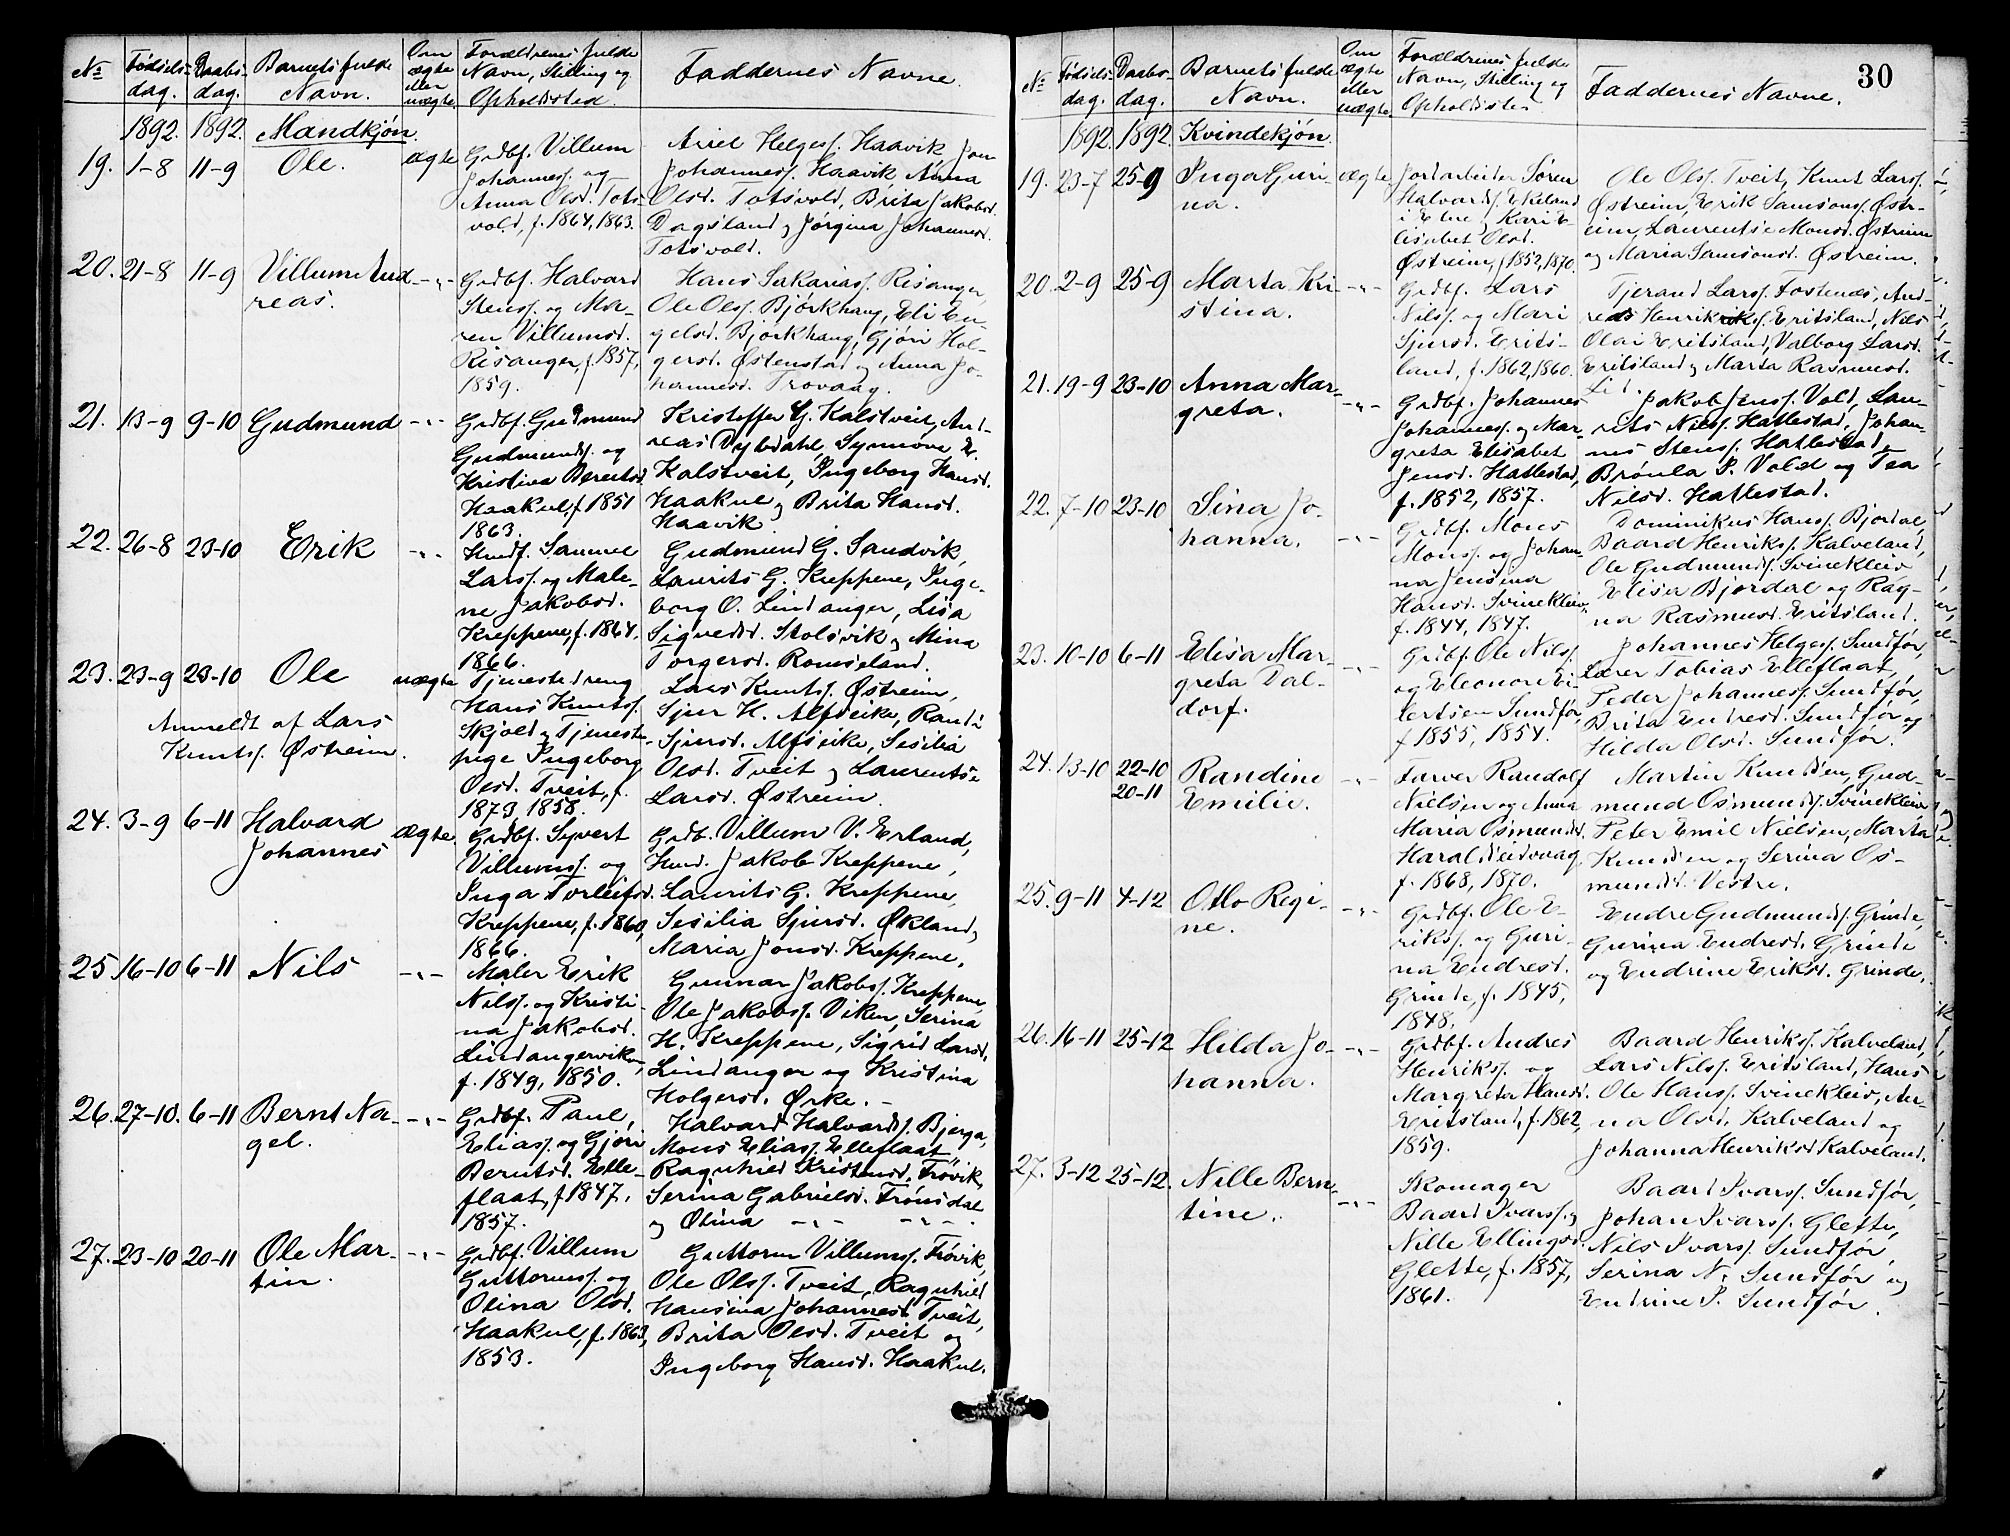 No
Fødsels-
dag.
Daabs-
dag.
Barnets fulde
Navn.
Om
ægte
eller
uægte.
Forældrenes fulde
Navn, Stilling og
Opholdssted.
Faddernes Navne.
1892. 1892. Mandkjøn.
19. 1-8 11-9 Ole. ægte
Grdbf. Villum
Johanness. og
Anna Olsd. Tots-
vold, f. 1864, 1863.
Helgess. Haavik, Jon
Johanness. Haavik Anna
Olsd. Totsvold, Brita Jakobsd.
Dagsland og Jørgina Johannesd.
Totsvold.
20. 21-8 11-9 Villum And-
reas.
-"-
Grdbf. Halvard
Stenss. og Ma-
ren Villumsd.
Risanger, f. 1857,
1859.
Hans Sakariass. Risanger,
Ole Olss. Bjørkhaug, Eli En-
gelsd. Bjørkhaug, Gjøri Hol-
gersd. Østenstad og Anna Jo-
hannesd. Trovaag.
21. 13-9 9-10 Gudmund -"-
Grdbf. Gudmund
Gudmunds. og
Kristina Berentsd.
Haakul, f. 1851
1863.
Kristoffer G. Kalstveit, And-
reas Dybdahl, Synnøve E.
Kalstveit, Ingeborg Hansd.
Haakul og Brita Hansd.
Haavik
22. 26-8 23-10 Erik -"-
Husf. Samuel
Larss. og Male-
ne Jakobsd.
Kreppene, f. 1864.
1866.
Gudmund G. Sandvik,
Laurits G. Kreppene, Inge-
borg O. Lindanger, Lisa
Sigvedsd. Stolsvik og Mina
Torgersd. Romseland.
23. 23-9 23-10 Ole uægte
Anmeldt af Lars
Knuts. Østreim.
Tjenestedreng
Hans Knuts.
Skjold og Tjeneste-
pige Ingeborg
Olsd. Tveit, f.
1873, 1858.
Lars Knuts. Østreim,
Sjur H. Alfseike, Randi
Sjursd. Alfseike, Sesilia
Olsd. Tveit og Laurentse
Larsd. Østreim.
24. 3-9 6-11 Halvard
Johannes
ægte.
Grdbf. Syvert
Villumss. og
Inga Torleifsd.
Kreppene, f. 1860,
1866.
Grdb. Villum V. Erland,
Husm. Jakob Kreppene,
Laurits G. Kreppene,
Sesilia Sjursd. Økland og
Maria Jonsd. Kreppene.
25. 16-10 6-11 Nils -"-
Maler Erik
Nilss. og Kristi-
na Jakobsd.
Lindangerviken,
f. 1849, 1850.
Gunnar Jakobss. Kreppene,
Ole Jakobss. Viken, Serina
H. Kreppene, Sigrid Larsd.
Lindanger og Kristina
Holgersd. Ørke. -
26. 27-10. 6-11 Bernt Na-
gel.
-"-
Grdbf. Paul,
Eliass. og Gjøri
Berntsd. Elle-
flaat, f. 1847,
1857.
Halvard Halvards. Bjerga,
Mons Eliass. Elleflaat
Ragnhild Kristensd. Frøvik,
Serina Gabrielsd. Frønsdal
og Olina -"- -"-.
27. 23-10 20-11 Ole Mar-
tin.
-"-
Grdbf. Villum
Guttormss. og
Olina Olsd.
Haakul, f. 1863,
1853.
Guttorm Villumss. Frøvik,
Ole Olss. Tveit, Ragnhild
Hansina Johannesd. Tveit,
Brita Olsd. Tveit og
Ingeborg Hansd. Haakul.
30
No
Fødsels-
dag.
Daabs-
dag.
Barnets fulde
Navn.
Om
ægte
eller
uægte.
Forældrenes fulde
Navn, Stilling og
Opholdssted
Faddernes Navne.
1892. 1892. Kvindekjøn.
19. 23-7 25-9 Inga Guri-
na.
ægte
Jordarbeider Søren
Halvards. Ekeland
i Etne, Kari E-
lisabet Olsd.
Østreim, f. 1852, 1870.
Ole Olss. Tveit, Knut Larss.
Østreim, Erik Samsons. Østr-
eim, Laurentse Monsd. Østreim
og Maria Samsonsd. Østreim.
20. 2-9 25-9 Marta Kri-
stina.
-"-
Grdbf. Lars
Nilss. og Mari
Sjursd. Erits-
land, f. 1862, 1860.
Tjerand Larss. Fostenæs, And-
reas Henriks. Eritsland, Nils
Olai Eritsland, Valborg Larsd.
Eritsland og Marta Rasmusd.
Li.
21. 19-9 23-10 Anna Mar-
greta.
-"-
Grdbf. Johannes
Johanness. og Mar-
greta Elisabet
Jensd. Hatlestad,
f. 1852, 1857.
Jakob Jenss. Vold, Lau-
rits Nilss. Hatlestad, Johan-
nes Stenss. Hatlestad,
Brønla P. Vold og Tea
Nilsd. Hatlestad.
22. 7-10 23-10 Sina Jo-
hanna.
-"-
Grdbf. Mons
Monss. og Johan-
na Jensina
Hansd. Svinekleiv,
f. 1844, 1847.
Dominikus Hanss. Bjordal,
Baard Henrikss. Kalveland,
Ole Gudmunds. Svinekleiv
Elisa Bjordal og Rag-
na Rasmusd. Eritsland.
23. 10-10 6-11 Elisa Mar-
greta Val-
dorf.
-"-
Grdbf. Ole Nilss.
og Eleonore Ei-
lertsen Sundfør,
f. 1855, 1854.
Johannes Helgess. Sundfør,
Lærer Tobias Elleflaat,
Peder Johanness. Sundfør,
Brita Endresd. Sundfør og
Hilda Olsd. Sundfør.
24. 13-10 22-10
20-11
Randine
Emilie.
-"-
Farver Randolf
Nielsen og Anna
Maria Osmundsd.
Haraldseidvaag
f. 1868, 1870.
Martin Knudsen, Gud-
mund Osmunds. Svinekleiv,
Peter Emil Nielsen, Marta
Knudsen og Serina Os-
mundsd. Vestre.
25. 9-11 4-12 Otto Regi-
ne.
-"-
Grdbf. Ole E-
rikss. og Guri-
na Endresd.
Grinde, f. 1845,
1848.
Endre Gudmunds. Grinde,
Gurina Endresd. Grinde
og Endrine Eriksd. Grinde.
26. 16-11 25-12 Hilda Jo-
hanna.
-"-
Grdbf. Andres
Henrikss. og
Margreta Hansd.
Eritsland, f. 1862,
1859.
Baard Henrikss. Kalveland,
Lars Nilss. Eritsland, Hans
Ole Hanss. Svinekleiv, An-
na Olsd. Kalveland og
Johanna Henriksd. Kalveland.
27. 3-12 25-12. Nille Bern-
tine.
-"-
Skomager
Baard Ivarss. og
Nille Ellingsd.
Glette, f. 1857,
1861.
Baard Ivarss. Sundfør,
Johan Ivarss. Glette,
Nils Ivarss. Sundfør,
Serina N. Sundfør og
Endrine P. Sundfør.